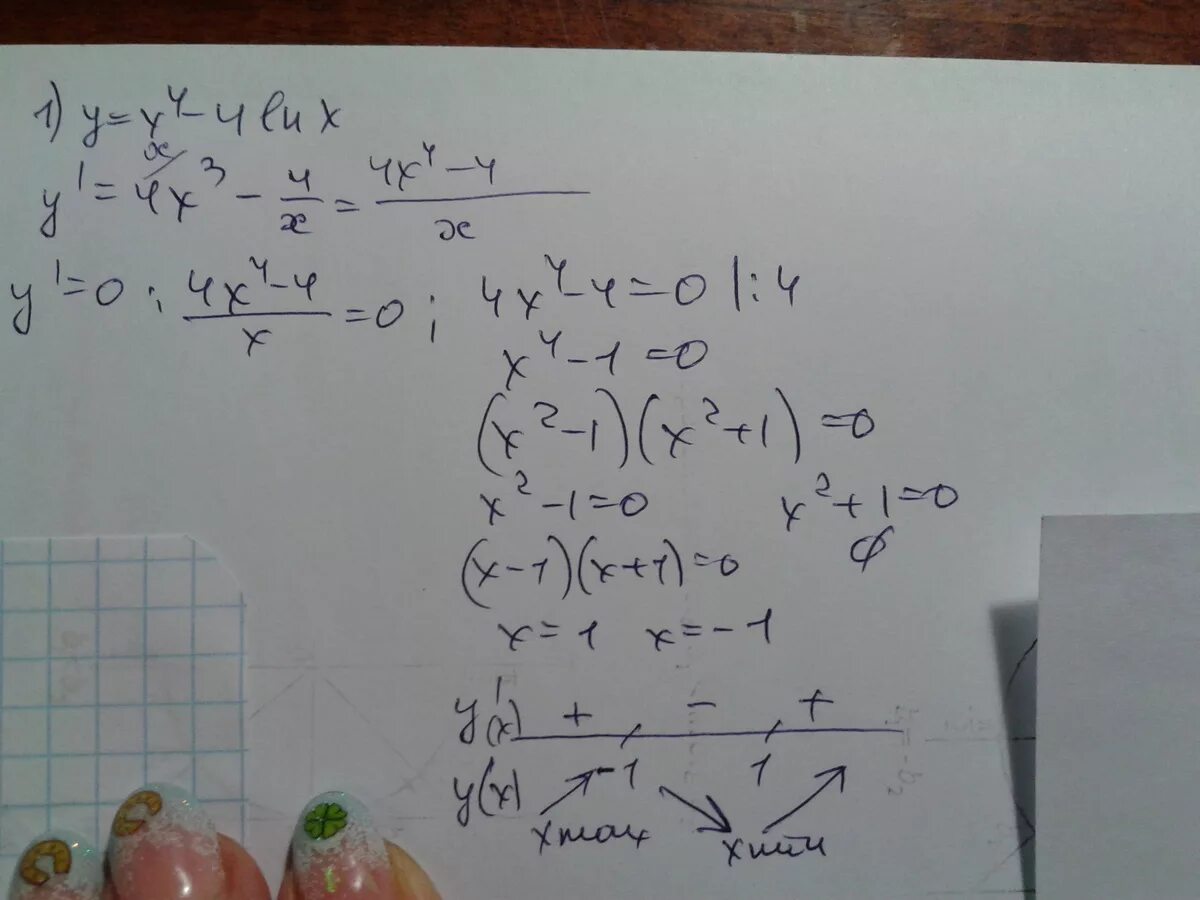 1) y = x⁴ - 4 ln x
x
y' = 4x³ - 4/x = (4x⁴ - 4)/x
y' = 0 ; (4x⁴ - 4)/x = 0 ; 4x⁴ - 4 = 0 |: 4
x⁴ - 1 = 0
(x² - 1)(x² + 1) = 0
x² - 1 = 0 x² + 1 = 0
(x - 1)(x + 1) = 0 ∅
x = 1 x = -1
y'(x) + - +
y(x) -1 1
xmax xmin